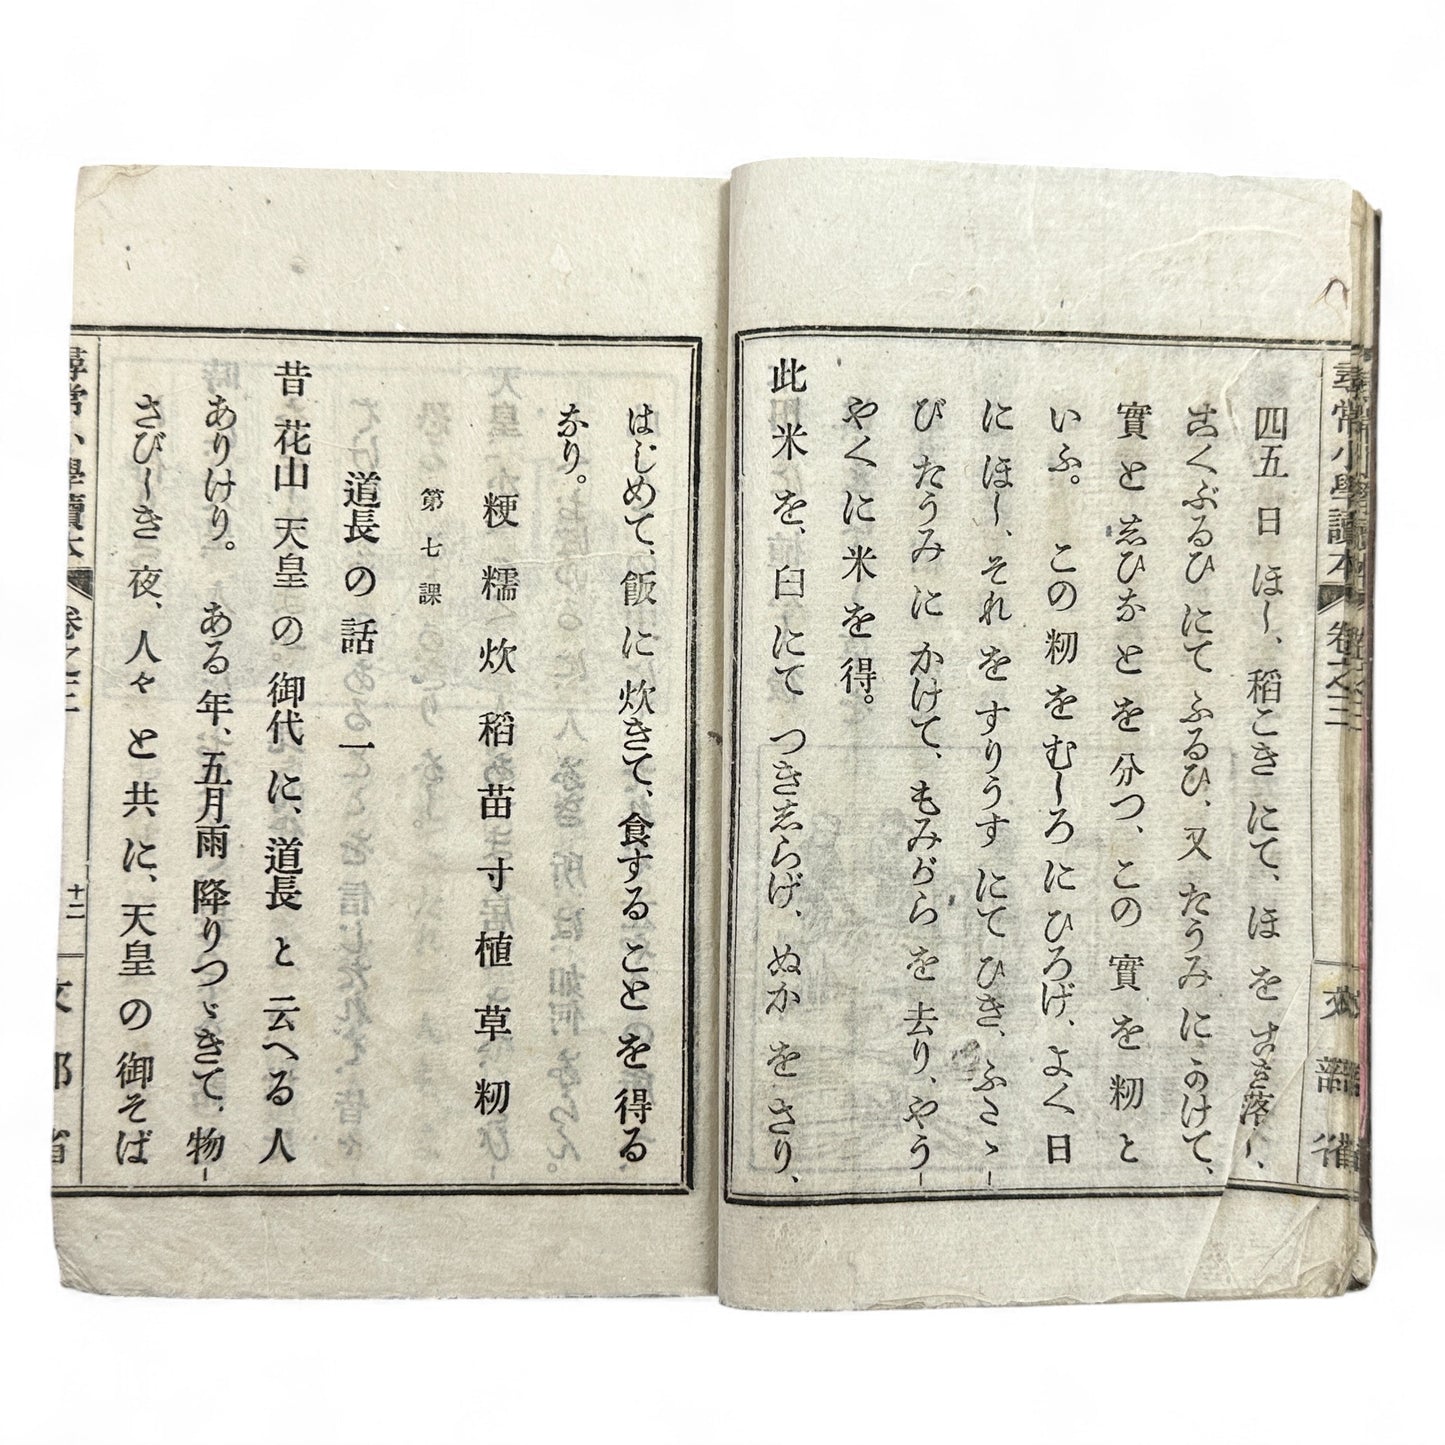 尋常小學讀本 卷之三 文部省
四五日ほし、稻こきにて、ほをこき落し、
こくぶるひにてふるひ、又たうみにかけて、
實としひなとを分つ、この實を籾と
いふ。この籾をむしろにひろげ、よく日
にほし、それをすりうすにてひき、ふたゝ
びたうみにかけて、もみがらを去り、やう
やくに米を得。
此米を、臼にてつきしらげ、ぬかをさり、
はじめて、飯に炊きて、食することを得る
なり。
粳 糯 炊 稻苗 寸 植 草 籾
第七課
道長の話一
昔花山天皇の御代に、道長と云へる人
ありけり。ある年、五月雨降りつゞきて、物
さびしき夜、人々と共に、天皇の御そば
尋常小學讀本 卷之三 十二 文部省